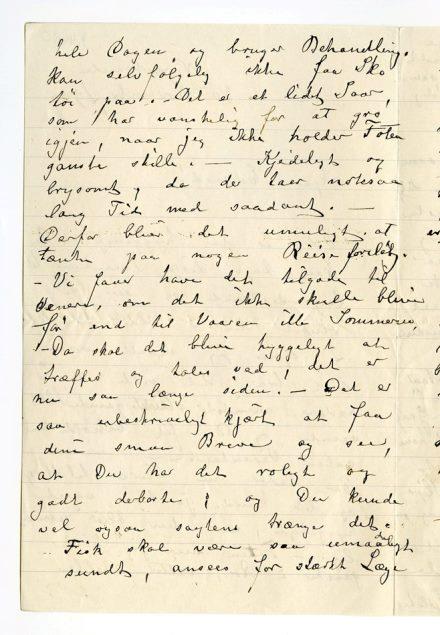 hele Dagen, og bruger Behandling.
Kan selvfølgelig ikke faa Sko
tøi paa. - Det er et lidet Saar,
som har vanskelig for at gro
igjen, naar jeg ikke holder Foten
ganske stille. - Kjedeligt og
brysomt, da der taer
lang Tid med saadant. -
Derfor bliver det umuligt at
tænke paa nogen Reise foreløb.
- Vi faar have det tilgode til
senere, om det ikke skulle blive
før end til Vaaren ille Sommeren,
- Da skal det blive hyggeligt at
træffes og tales ved, det er
nu saa længe siden. - Det er
saa ubeskriveligt kjært at faa
dine smaa Breve og se,
at Du har det roligt og
godt derborte; og Du kunde
vel ogsaa sagtens trænge det.
Fisk skal være saa umaadeligt
sundt, ansees for stærkt Læge